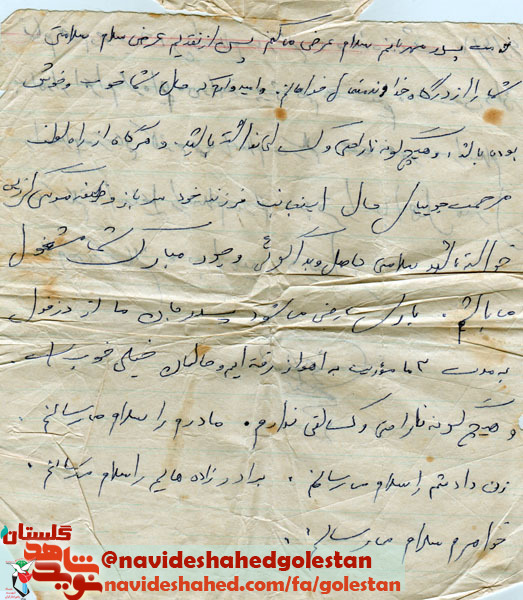 خدمت پدر مهربانم سلام عرض میکنم پس از تقدیم عرض سلام سلامتی
شما را از درگاه خداوند متعال خواهانم. و امیدوارم که حال شما خوب و خوش
بوده باشد، و هیچ گونه ناراحتی و کسالتی نداشته باشید. و هرگاه از راه لطف
مرحمت جویای حال اینجانب فرزند خود سرباز وظیفه
خواسته باشید سلامتی حاصل و بدعاگوئی وجود مبارک شما مشغول
می باشم. باری بعرض می رساند پدر جان ما از دزفول
به مدت ماموریت به اهواز رفته ایم و حالمان خیلی خوب است
و هیچ گونه ناراحتی و کسالتی ندارم. مادرم را سلام میرسانم.
زن داداشم را سلام میرسانم. برادرزاده هایم را سلام میرسانم.
خواهرم سلام میرسانم.
نوید شاهد گلستان
@navideshahedgolestan
navideshahed.com/fa/golestan